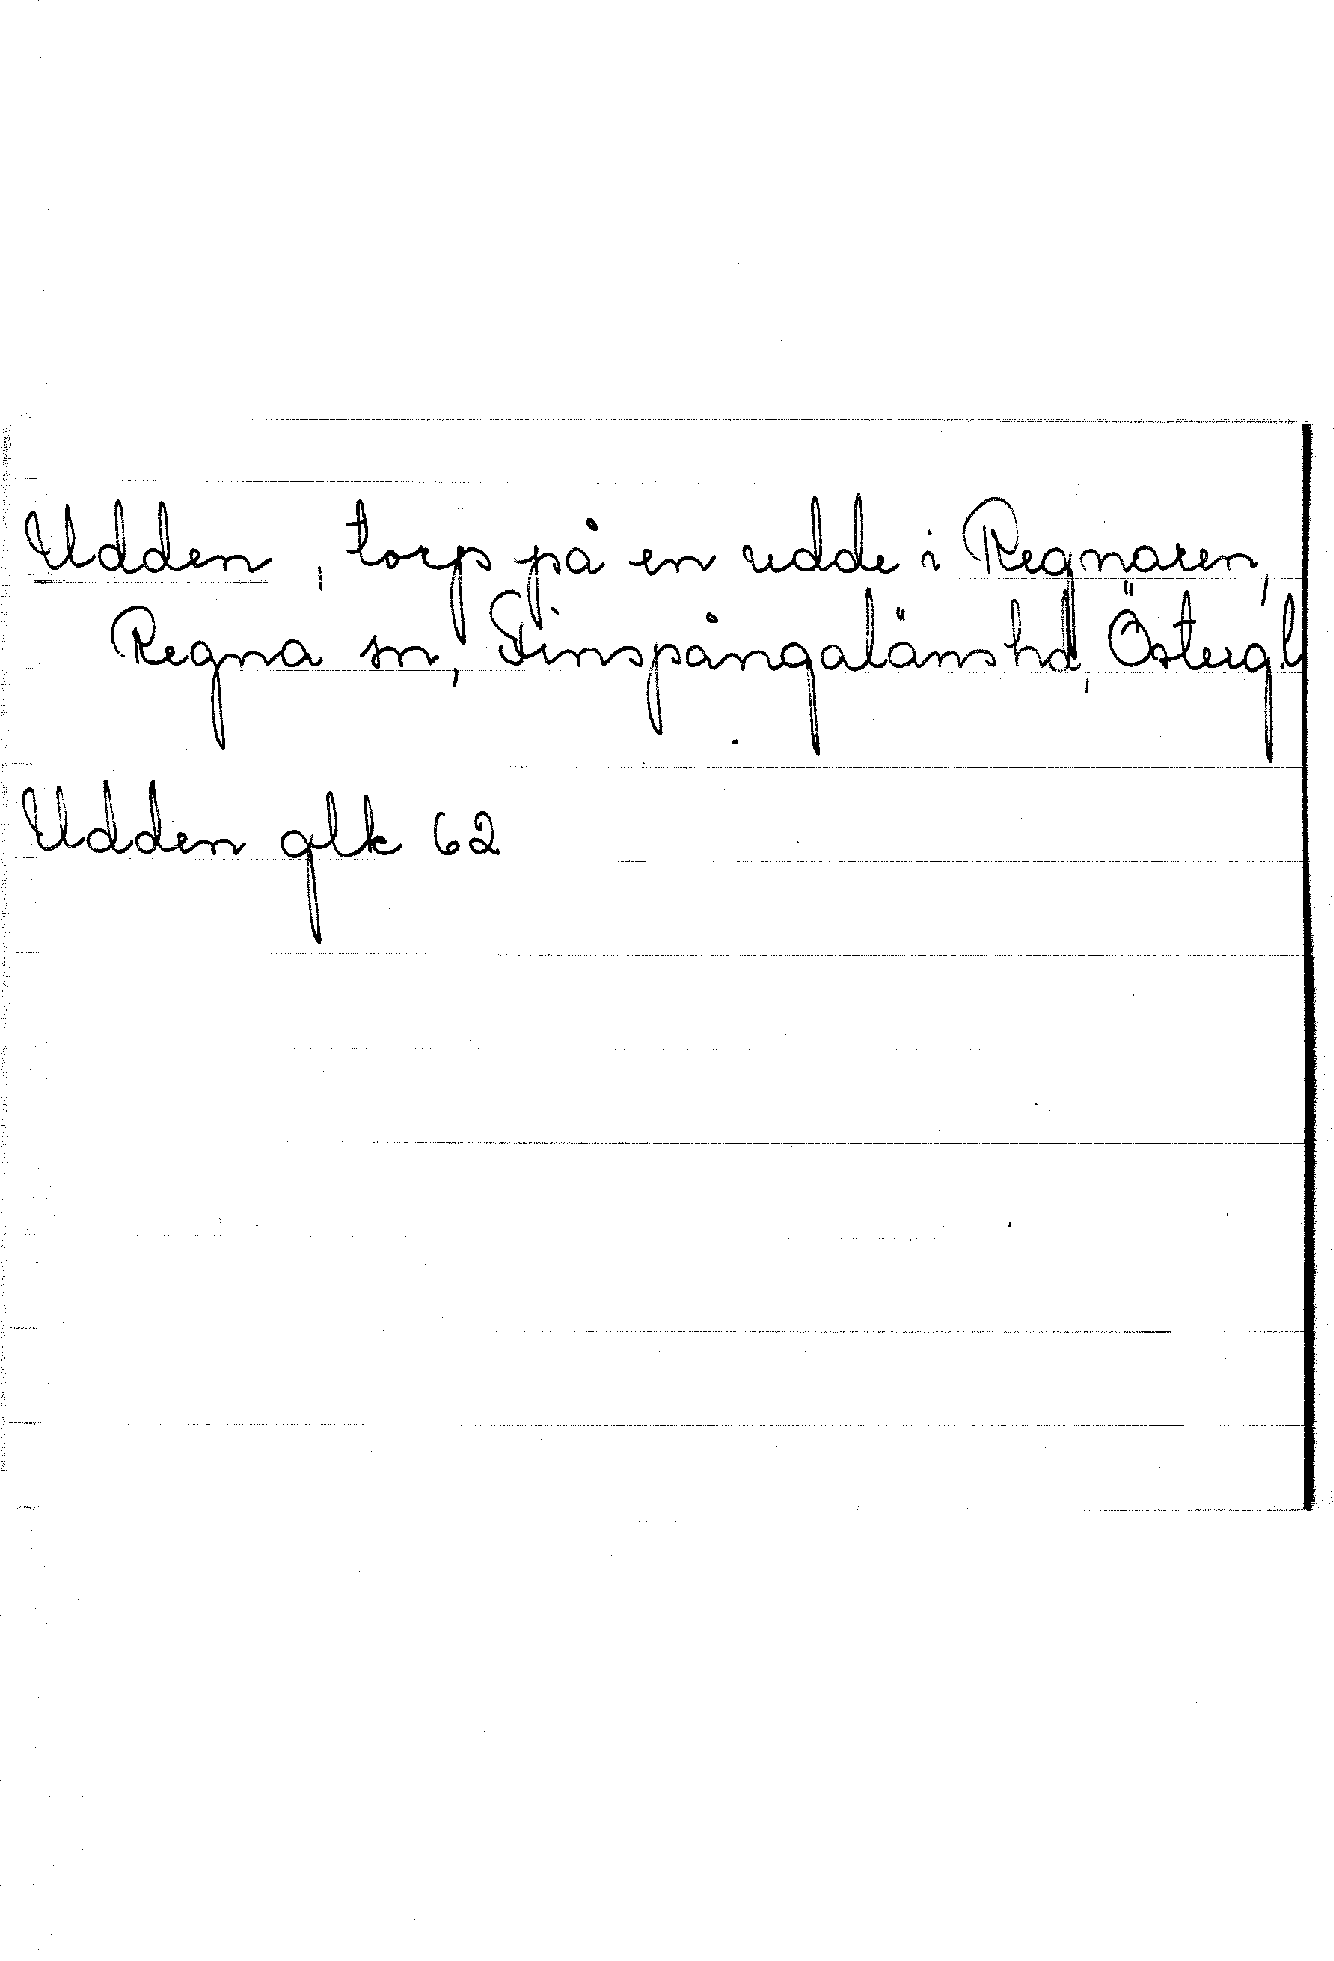 Udden, torp på en udde i Regnaren,
Regna sn, Finspångaläns hd, Östergl
Udden glk 62